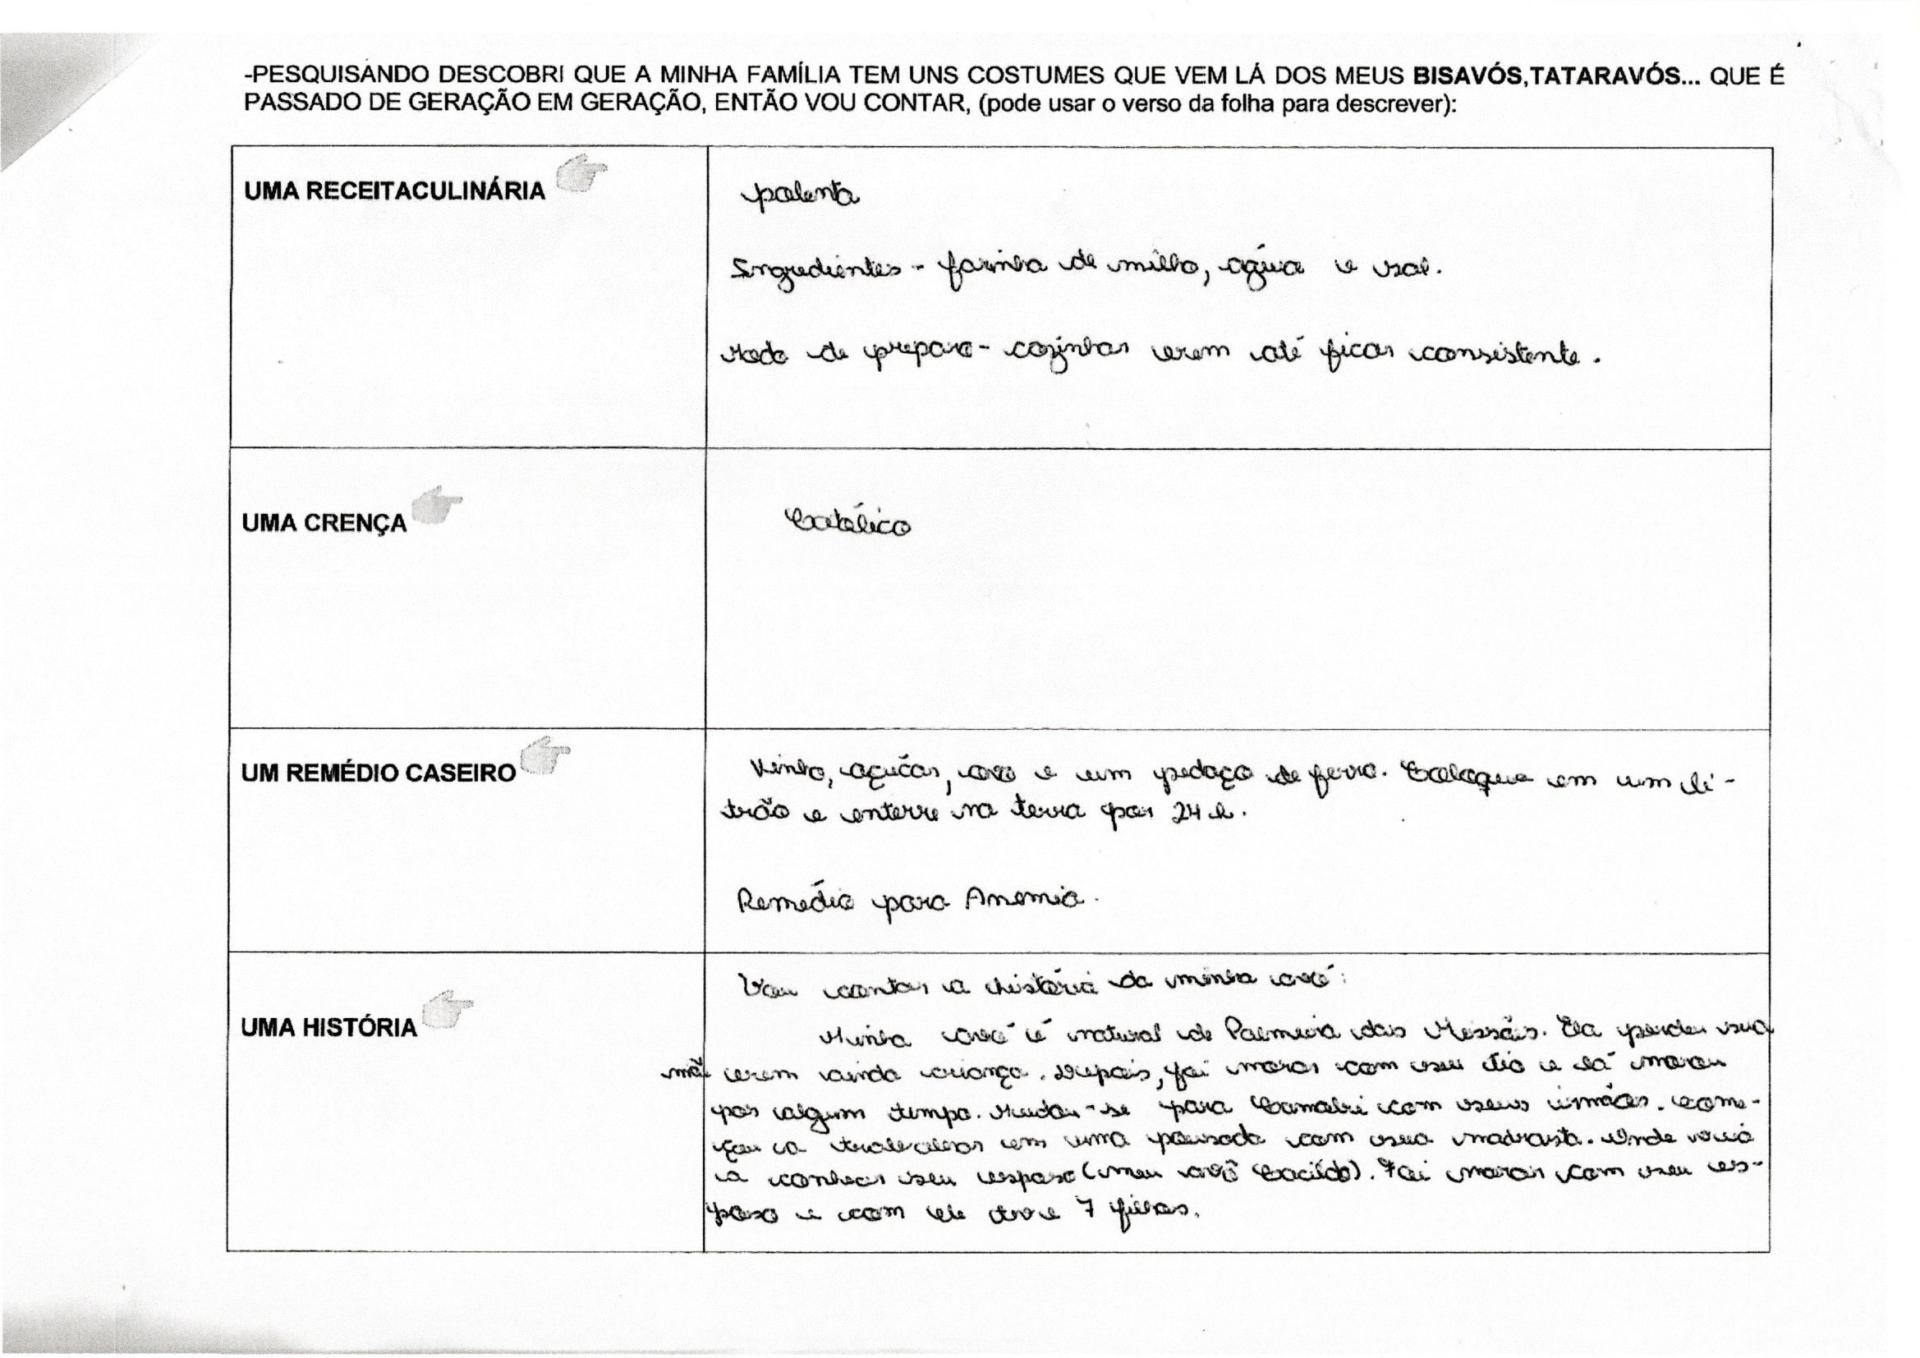 -PESQUISANDO DESCOBRI QUE A MINHA FAMÍLIA TEM UNS COSTUMES QUE VEM LÁ DOS MEUS BISAVÓS,TATARAVÓS... QUE É
PASSADO DE GERAÇÃO EM GERAÇÃO, ENTÃO VOU CONTAR, (pode usar o verso da folha para descrever):
UMA RECEITACULINÁRIA
polenta
Ingredientes - farinha de milho, água e sal.
Modo de preparo - cozinhar bem até ficar consistente.
UMA CRENÇA
Católico
UM REMÉDIO CASEIRO
Vinho, açúcar, ovo e um pedaço de ferro. Coloque em um li-
trão e enterre na terra por 24 h.
Remédio para Anemia.
UMA HISTÓRIA
Vou contar a história da minha avó:
Minha avó é natural de Palmeira das Missões. Ela perdeu sua
mãe bem ainda criança. Depois, foi morar com seu tio e lá morou
por algum tempo. Mudou-se para com seus irmãos. Come-
çou a trabalhar em uma pousada com sua madrasta. Onde veio
a conhecer seu esposo (meu avô Cacildo). Foi morar com seu es-
poso e com ele teve 7 filhos.